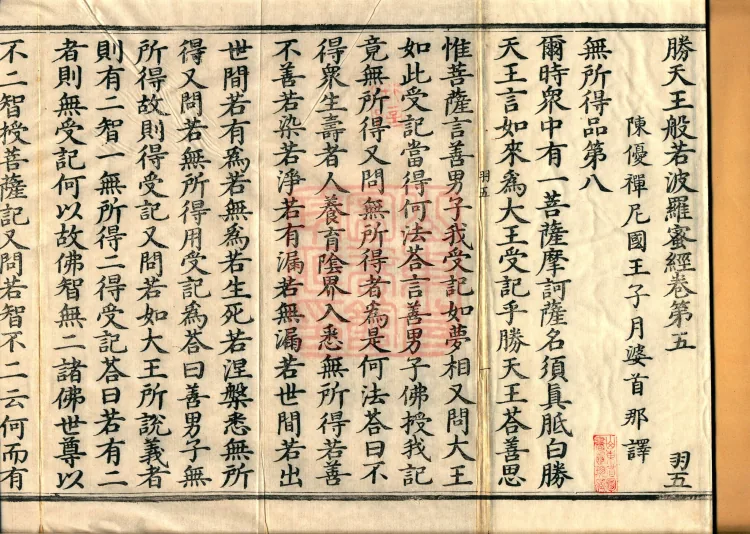 勝天王般若波羅蜜經卷第五 羽五
陳優禪尼國王子月婆首那譯
無所得品第八
爾時衆中有一菩薩摩訶薩名須眞胝白勝
天王言如來爲大王受記乎勝天王荅善思
羽五
惟菩薩言善男子我受記如夢相又問大王
如此受記當得何法荅言善男子佛授我記
竟無所得又問無所得者爲是何法荅曰不
得衆生壽者人養育陰界入悉無所得若善
不善若染若淨若有漏若無漏若世間若出
世間若有爲若無爲若生死若涅槃悉無所
得又問若無所得用受記爲荅曰善男子無
所得故則得受記又問若如大王所說義者
則有二智一無所得二得受記荅曰若有二
者則無受記何以故佛智無二諸佛世尊以
不二智授菩薩記又問若智不二云何而有